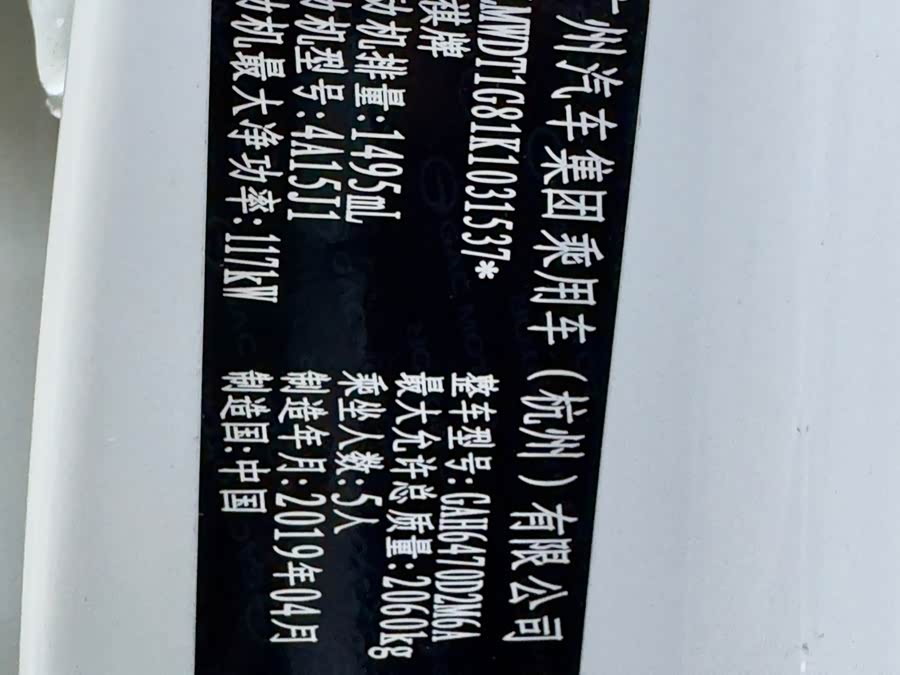 广州汽车集团乘用车（杭州）有限公司
LMWDT1G81K1031537*
祺牌
整车型号:GAH6470D2M6A
最大允许总质量:2060kg
动机排量:1495mL
乘坐人数:5人
动机型号:4A15J1
制造年月:2019年04月
动机最大净功率:117kW
制造国:中国